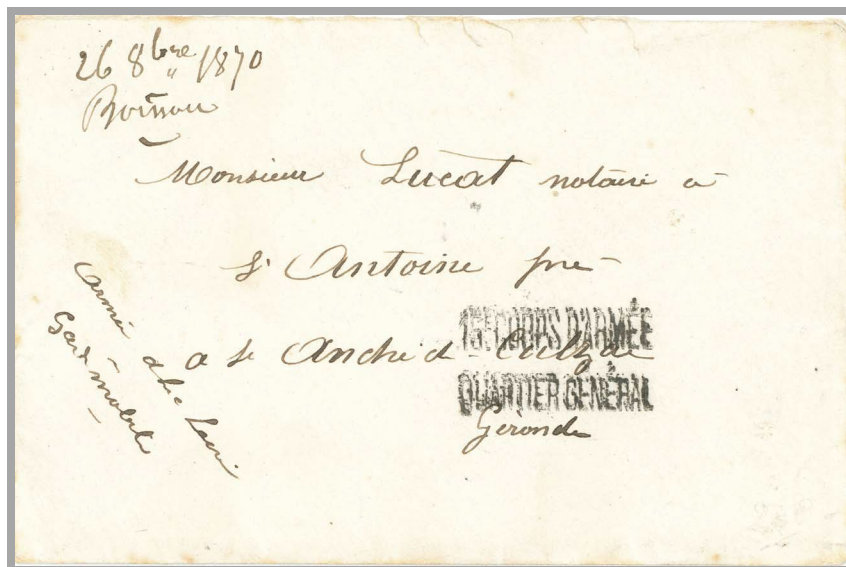 26 8bre 1870
Monsieur Lucat notaire à
St Antoine pre
a St André d Cubzac
15E CORPS D'ARMÉE
QUARTIER GÉNÉRAL
Gironde
armée de la Loire
Gard mobile